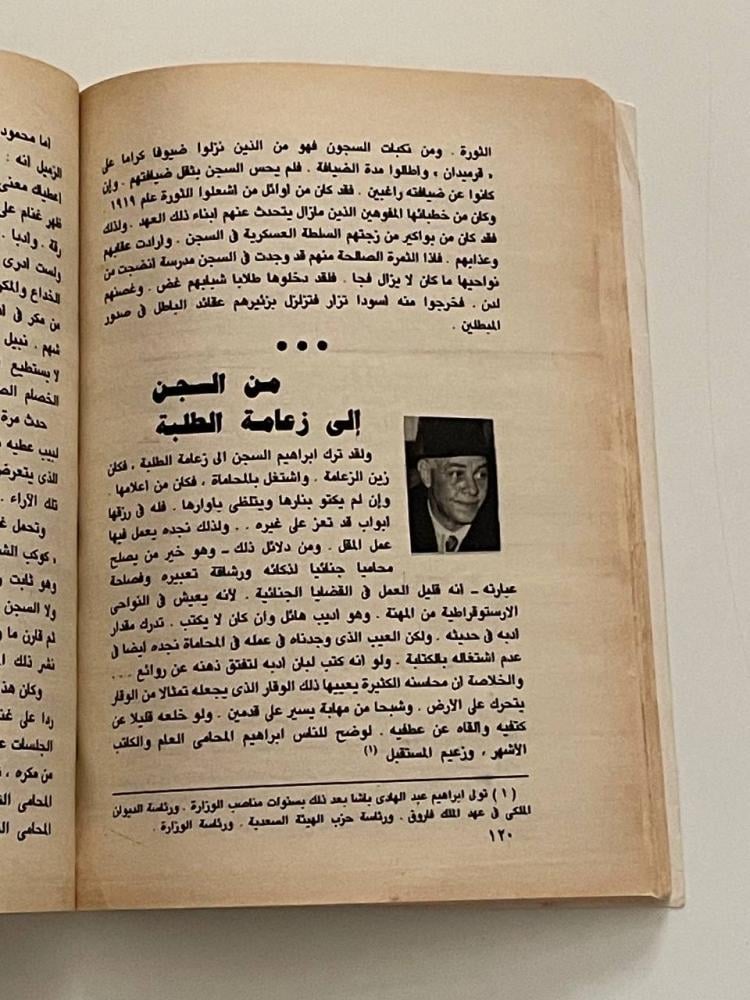 الثورة . ومن نكبات السجون فهو من الذين نزلوا ضيوفا كراما على
« قرميدان » واطالوا مدة الضيافة . فلم يحس السجن بثقل ضيافتهم . وإن
كانوا عن ضيافته راغبين . فقد كان من اوائل من اشعلوا الثورة عام ١٩١٩ .
وكان من خطبائها المفوهين الذين مازال يتحدث عنهم ابناء ذلك العهد . ولذلك
فقد كان من بواكير من زجتهم السلطة العسكرية فى السجن . وارادت عقابهم
وعذابهم . فاذا الثمرة الصالحة منهم قد وجدت فى السجن مدرسة انضجت من
نواحيها ما كان لا يزال فجا . فلقد دخلوها طلابا شبابهم غض . وغصنهم
لدن . فخرجوا منه اسودا تزار فتزلزل بزئيرهم عقائد الباطل فى صدور
المبطلين .
من السجن
إلى زعامة الطلبة
ولقد ترك ابراهيم السجن الى زعامة الطلبة ، فكان
زين الزعامة . واشتغل بالمحاماة ، فكان من اعلامها .
وإن لم يكتو بنارها ويتلظى باوارها . فله فى رزقها
ابواب قد تعز على غيره . . ولذلك نجده يعمل فيها
عمل المقل . ومن دلائل ذلك – وهو خير من يصلح
محاميا جنائيا لذكائه ورشاقة تعبيره وفصاحة
عبارته – انه قليل العمل فى القضايا الجنائية . لأنه يعيش فى النواحى
الارستوقراطية من المهنة . وهو اديب هائل وان كان لا يكتب . تدرك مقدار
ادبه فى حديثه . ولكن العيب الذى وجدناه فى عمله فى المحاماة نجده ايضا فى
عدم اشتغاله بالكتابة . ولو انه كتب لبان ادبه لتفتق ذهنه عن روائع ...
والخلاصة ان محاسنه الكثيرة يعيبها ذلك الوقار الذى يجعله تمثالا من الوقار
يتحرك على الارض . وشبحا من مهابة يسير على قدمين . ولو خلعه قليلا عن
كتفيه والقاه عن عطفيه . لوضح للناس ابراهيم المحامى العلم والكاتب
الأشهر ، وزعيم المستقبل (١)
( ١ ) تولى ابراهيم عبد الهادى باشا بعد ذلك بسنوات مناصب الوزارة . ورئاسة الديوان
الملكى فى عهد الملك فاروق . ورئاسة حزب الهيئة السعدية . ورئاسة الوزارة .
١٢٠
اما محمود
الزميل انه :
اعطيك معنى
ظهر غنام على
رقة . وادبا .
ولست ادرى
الخداع والمكر
من مكر فى
شهم . نبيل
لا يستطيع
الخصام
حدث مرة
لبيب عطيه
الذى يتعرض
تلك الآراء .
وتحمل
« كوكب
وهو ثابت
ولا السجن
لم قارن ما
نشر ذلك
وكان هذ
ردا على
الجلسات
من مكره ،
المحامى
المحامى